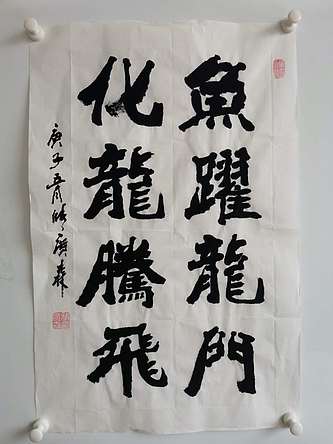 魚躍龍門
化龍騰飛
庚子五月